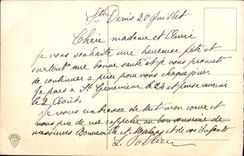 St Denis 20 Juillet
Chère madame et Amie
Je vous souhaite une heureuse fête et
surtout une bonne santé et je vous promet
de continuer a prier pour vous chaque jour
je pars a Ste Geneviève le 24 et pense revenir
le 2 Août.
Je vous embrasse de tout mon cœur et
vous prie de me rappeler au bon souvenir de
et de vos enfants